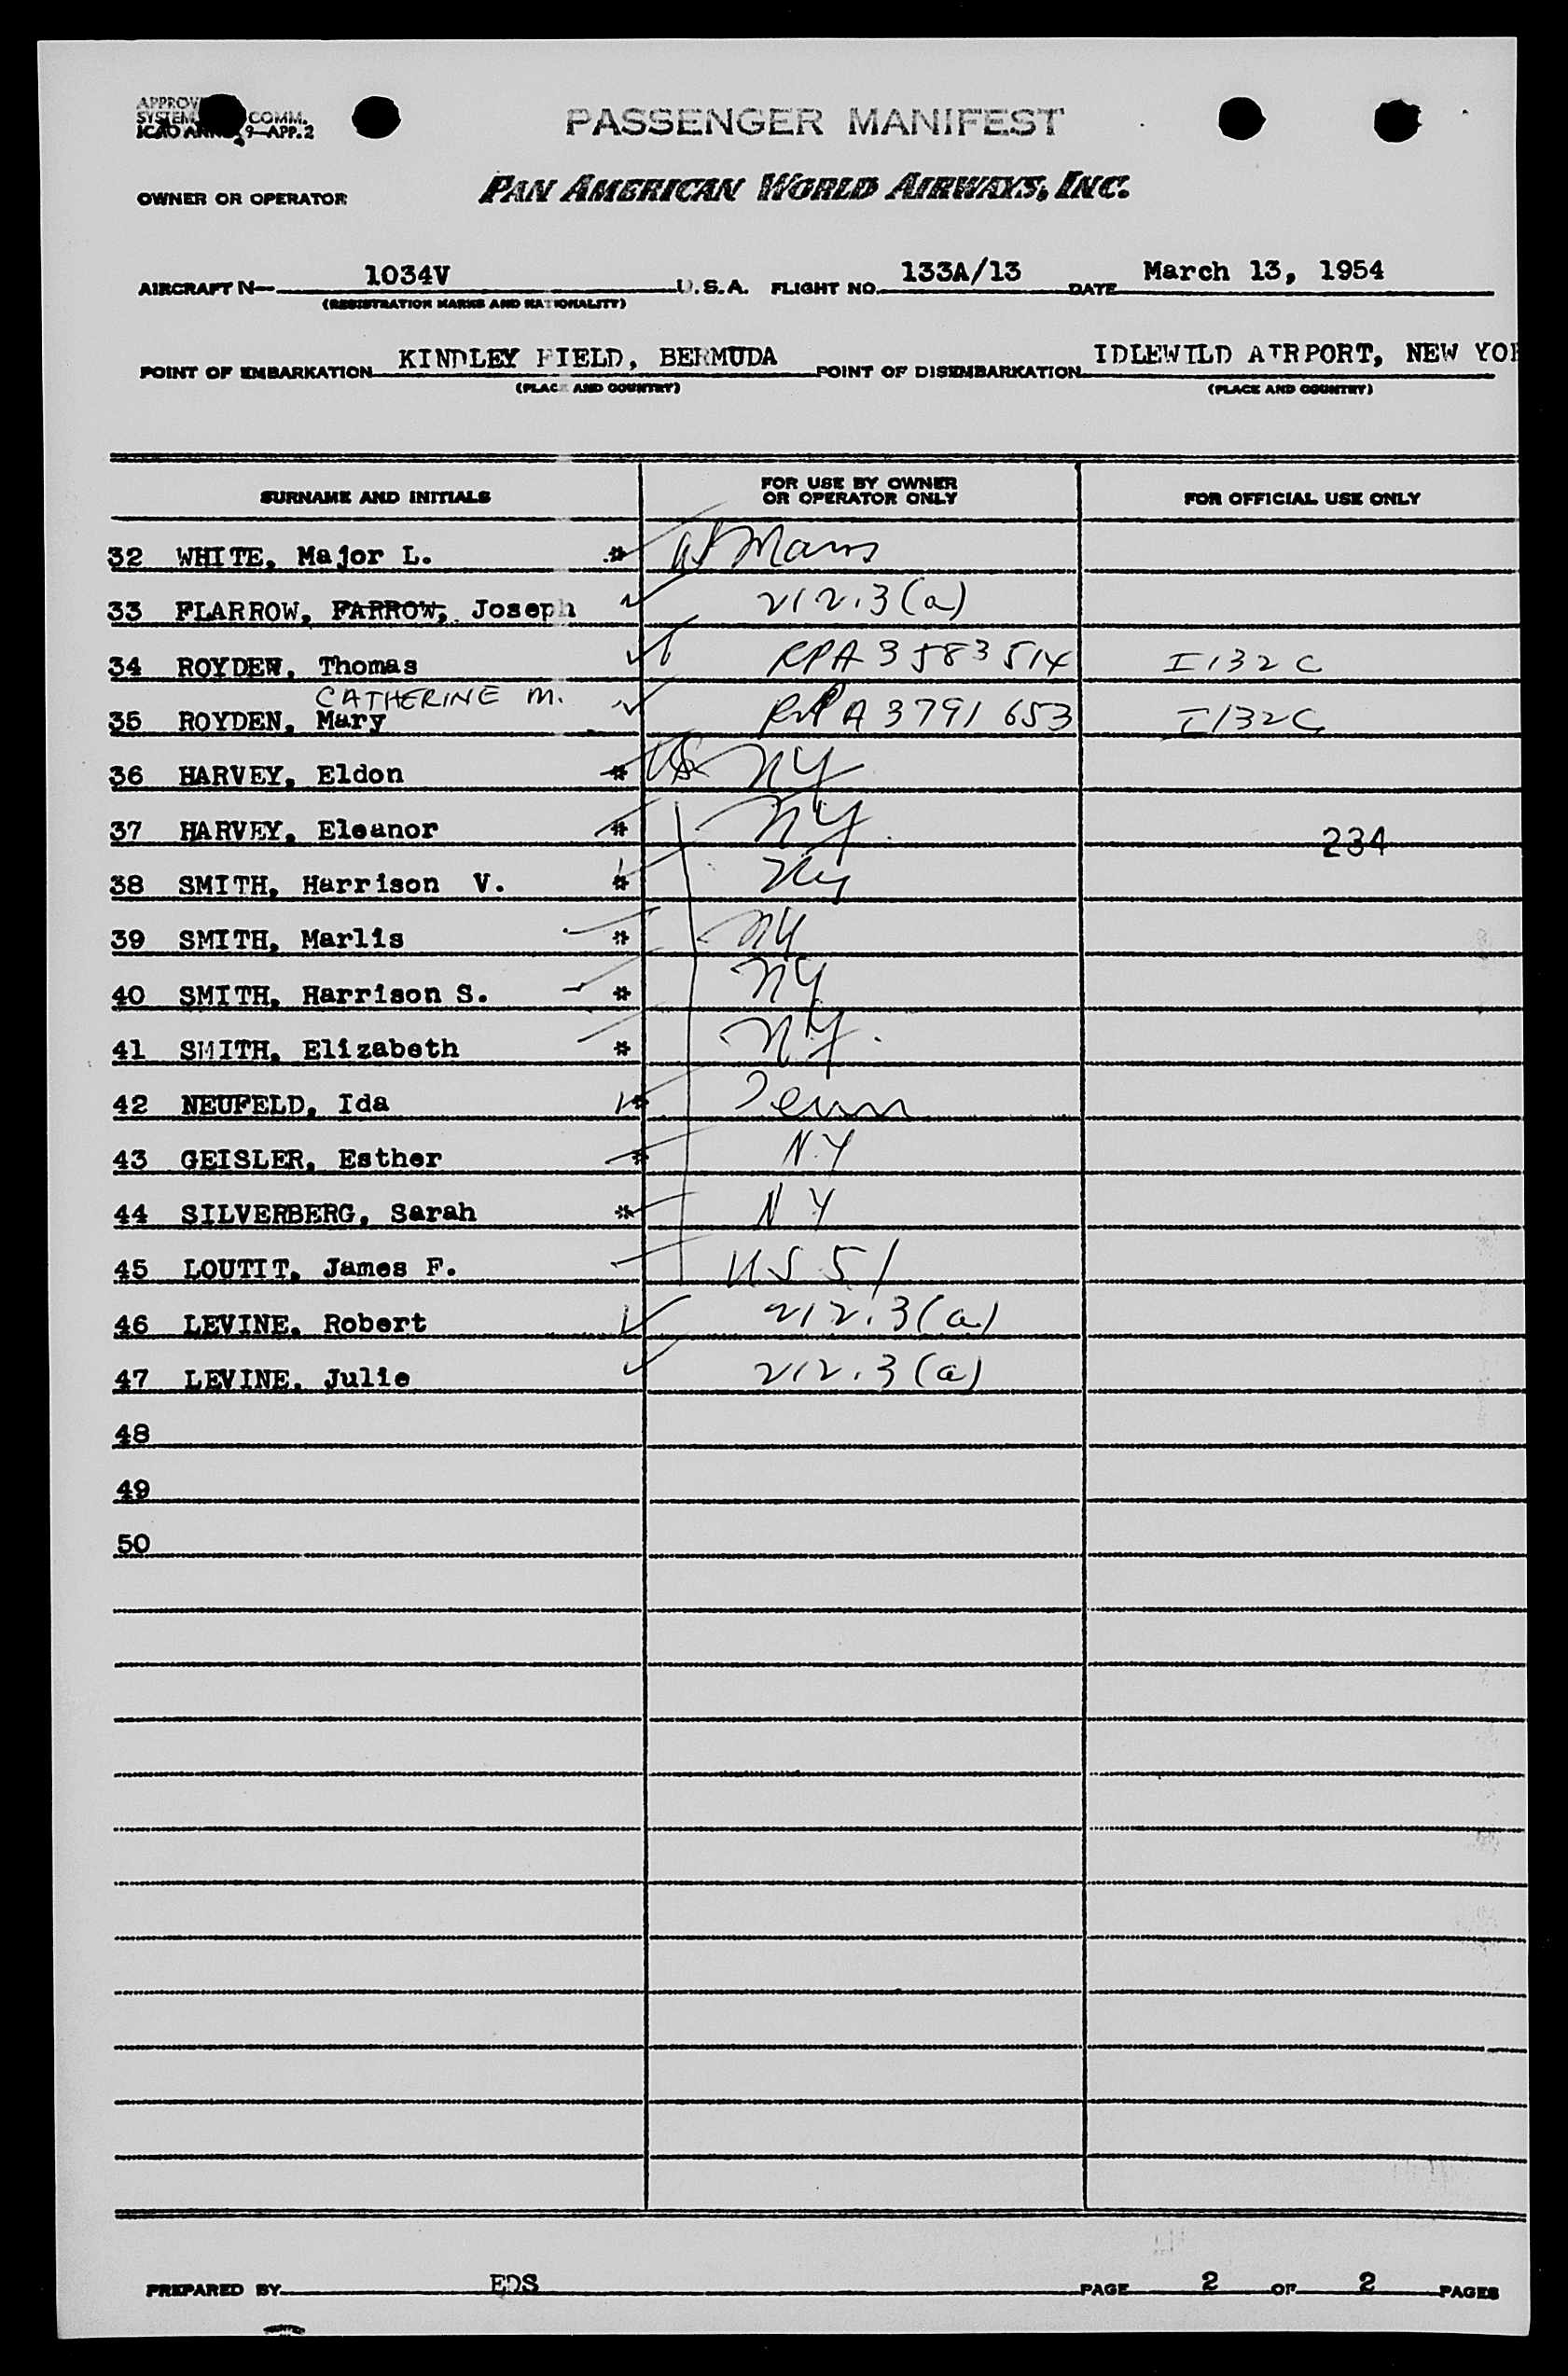 APPROV
SYSTEM COMM.
ICAO ANNEX 9—APP. 2
PASSENGER MANIFEST
OWNER OR OPERATOR
PAN AMERICAN WORLD AIRWAYS, INC.
AIRCRAFT N— 1034V U.S.A. FLIGHT NO. 133A/13 DATE March 13, 1954
(REGISTRATION MARKS AND NATIONALITY)
POINT OF EMBARKATION KINDLEY FIELD, BERMUDA POINT OF DISEMBARKATION IDLEWILD AIRPORT, NEW YOR
(PLACE AND COUNTRY) (PLACE AND COUNTRY)
SURNAME AND INITIALS FOR USE BY OWNER OR OPERATOR ONLY FOR OFFICIAL USE ONLY
32 WHITE, Major L. * Mass
33 FLARROW, FARROW, Joseph 212.3(a)
34 ROYDEN, Thomas RPA 3583514 I132C
CATHERINE M.
35 ROYDEN, Mary RPA 3791653 I132C
36 HARVEY, Eldon * US NY
37 HARVEY, Eleanor * NY 234
38 SMITH, Harrison V. * NY
39 SMITH, Marlis * NY
40 SMITH, Harrison S. * NY
41 SMITH, Elizabeth * NY
42 NEUFELD, Ida * Penn
43 GEISLER, Esther * N.Y
44 SILVERBERG, Sarah * N Y
45 LOUTIT, James F. US 51
46 LEVINE, Robert 212.3(a)
47 LEVINE, Julie 212.3(a)
48
49
50
PREPARED BY EDS PAGE 2 OF 2 PAGES